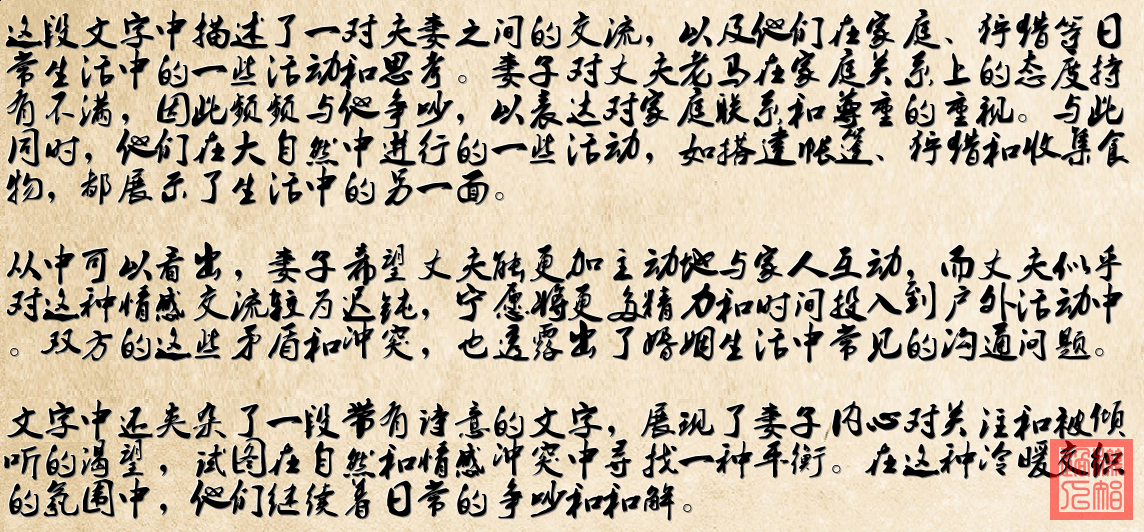 这段文字中描述了一对夫妻之间的交流，以及他们在家庭、狩猎等日
常生活中的一些活动和思考。妻子对丈夫老马在家庭关系上的态度持
有不满，因此频频与他争吵，以表达对家庭联系和尊重的重视。与此
同时，他们在大自然中进行的一些活动，如搭建帐篷、狩猎和收集食
物，都展示了生活中的另一面。
从中可以看出，妻子希望丈夫能更加主动地与家人互动，而丈夫似乎
对这种情感交流较为迟钝，宁愿将更多精力和时间投入到户外活动中
。双方的这些矛盾和冲突，也透露出了婚姻生活中常见的沟通问题。
文字中还夹杂了一段带有诗意的文字，展现了妻子内心对关注和被倾
听的渴望，试图在自然和情感冲突中寻找一种平衡。在这种冷暖交织
的氛围中，他们继续着日常的争吵和和解。